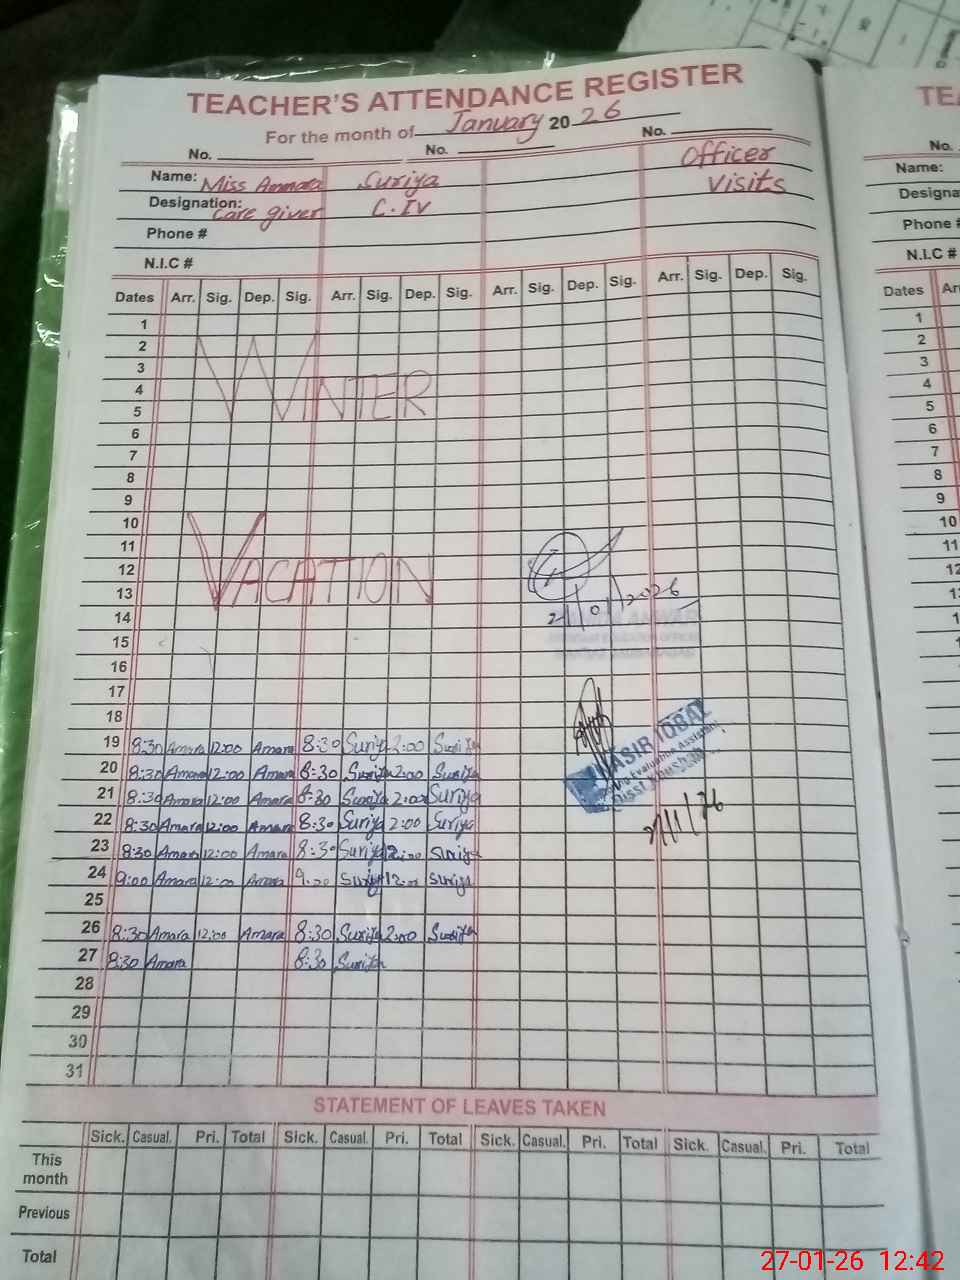 TEACHER'S ATTENDANCE REGISTER
For the month of January 20 26
No. No. No.
Name: Miss Ammara Suriya Officer
Designation: Care giver C.IV Visits
Phone #
N.I.C #
Dates Arr. Sig. Dep. Sig. Arr. Sig. Dep. Sig. Arr. Sig. Dep. Sig. Arr. Sig. Dep. Sig.
1
2
3
4
5
WINTER
6
7
8
9
10
11
12
13
VACATION
14
21/01/2026
15
16
17
18
19 8:30 Amara 12:00 Amara 8:30 Suriya 2:00 Suriya
20 8:30 Amara 12:00 Amara 8:30 Suriya 2:00 Suriya
21 8:30 Amara 12:00 Amara 8:30 Suriya 2:00 Suriya
22 8:30 Amara 12:00 Amara 8:30 Suriya 2:00 Suriya
23 8:30 Amara 12:00 Amara 8:30 Suriya 2:00 Suriya
24 9:00 Amara 12:00 Amara 9:00 Suriya 12:00 Suriya
25
26 8:30 Amara 12:00 Amara 8:30 Suriya 2:00 Suriya
27 8:30 Amara 8:30 Suriya
28
29
30
31
IQBAL
Evaluation Assistant
STATEMENT OF LEAVES TAKEN
Sick. Casual. Pri. Total Sick. Casual. Pri. Total Sick. Casual. Pri. Total Sick. Casual. Pri. Total
This month
Previous
Total
TE
No.
Name:
Designa
Phone #
N.I.C #
Dates Arr
1
2
3
4
5
6
7
8
9
10
11
12
27-01-26 12:42